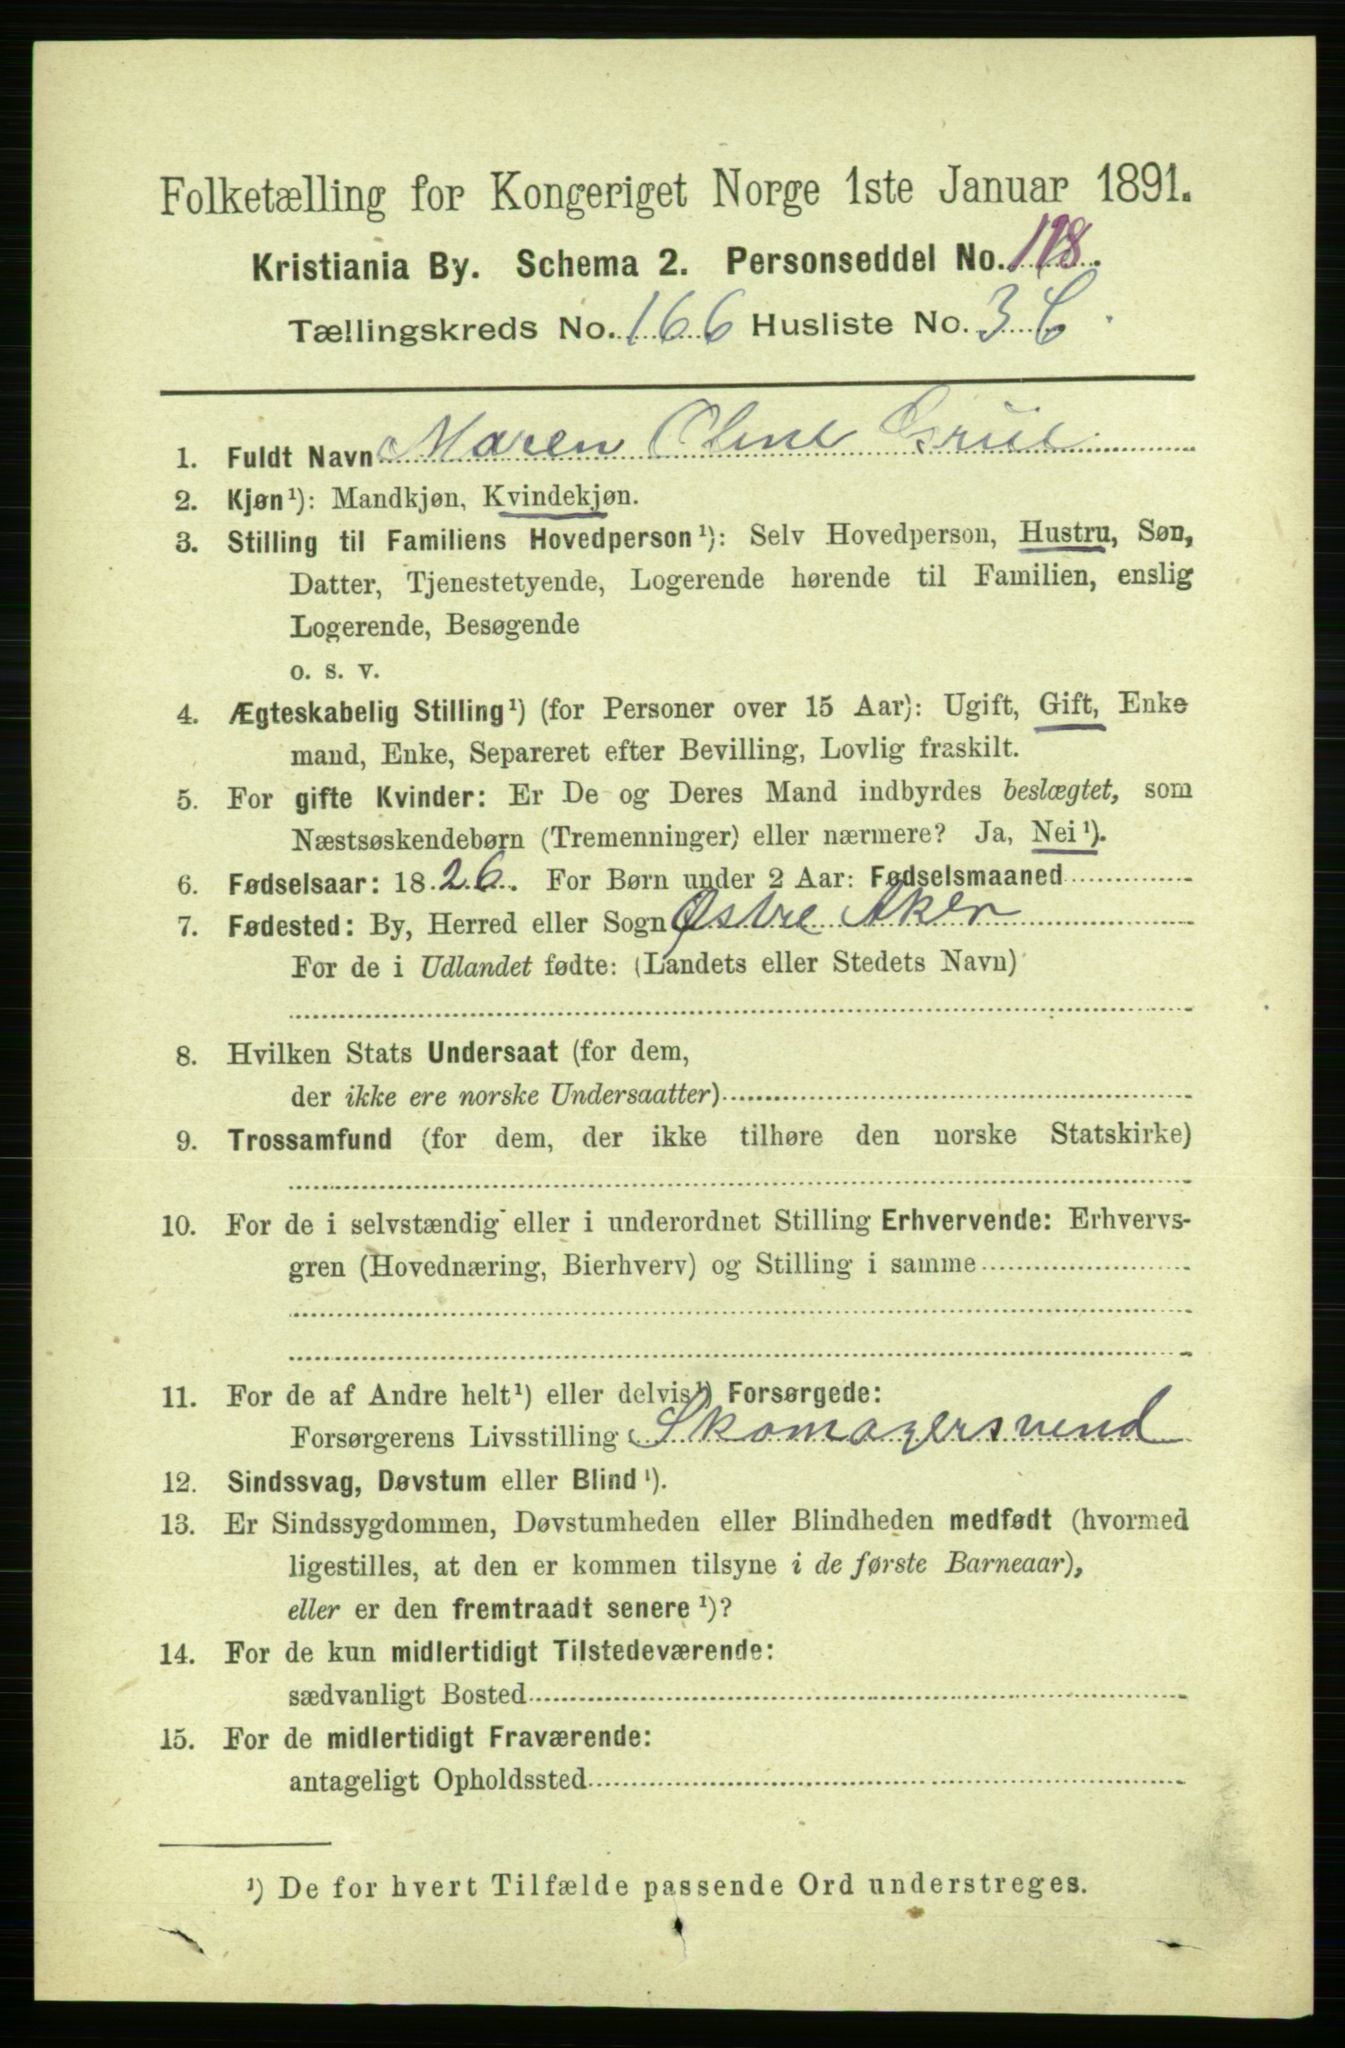 Folketælling for Kongeriget Norge 1ste Januar 1891.
Kristiania By. Schema 2. Personseddel No. 118.
Tællingskreds No. 166 Husliste No. 36.
1. Fuldt Navn Maren Oline Grüe
2. Kjøn¹): Mandkjøn, Kvindekjøn.
3. Stilling til Familiens Hovedperson¹): Selv Hovedperson, Hustru, Søn,
Datter, Tjenestetyende, Logerende hørende til Familien, enslig
Logerende, Besøgende
o. s. v.
4. Ægteskabelig Stilling¹) (for Personer over 15 Aar): Ugift, Gift, Enke
mand, Enke, Separeret efter Bevilling, Lovlig fraskilt.
5. For gifte Kvinder: Er De og Deres Mand indbyrdes beslægtet, som
Næstsøskendebørn (Tremenninger) eller nærmere? Ja, Nei¹).
6. Fødselsaar: 1826. For Børn under 2 Aar: Fødselsmaaned
7. Fødested: By, Herred eller Sogn Østre Aker
For de i Udlandet fødte: (Landets eller Stedets Navn)
8. Hvilken Stats Undersaat (for dem,
der ikke ere norske Undersaatter)
9. Trossamfund (for dem, der ikke tilhøre den norske Statskirke)
10. For de i selvstændig eller i underordnet Stilling Erhvervende: Erhvervs-
gren (Hovednæring, Bierhverv) og Stilling i samme
11. For de af Andre helt¹) eller delvis¹) Forsørgede:
Forsørgerens Livsstilling Skomagersvend
12. Sindssvag, Døvstum eller Blind¹).
13. Er Sindssygdommen, Døvstumheden eller Blindheden medfødt (hvormed
ligestilles, at den er kommen tilsyne i de første Barneaar),
eller er den fremtraadt senere¹)?
14. For de kun midlertidigt Tilstedeværende:
sædvanligt Bosted
15. For de midlertidigt Fraværende:
antageligt Opholdssted
¹) De for hvert Tilfælde passende Ord understreges.